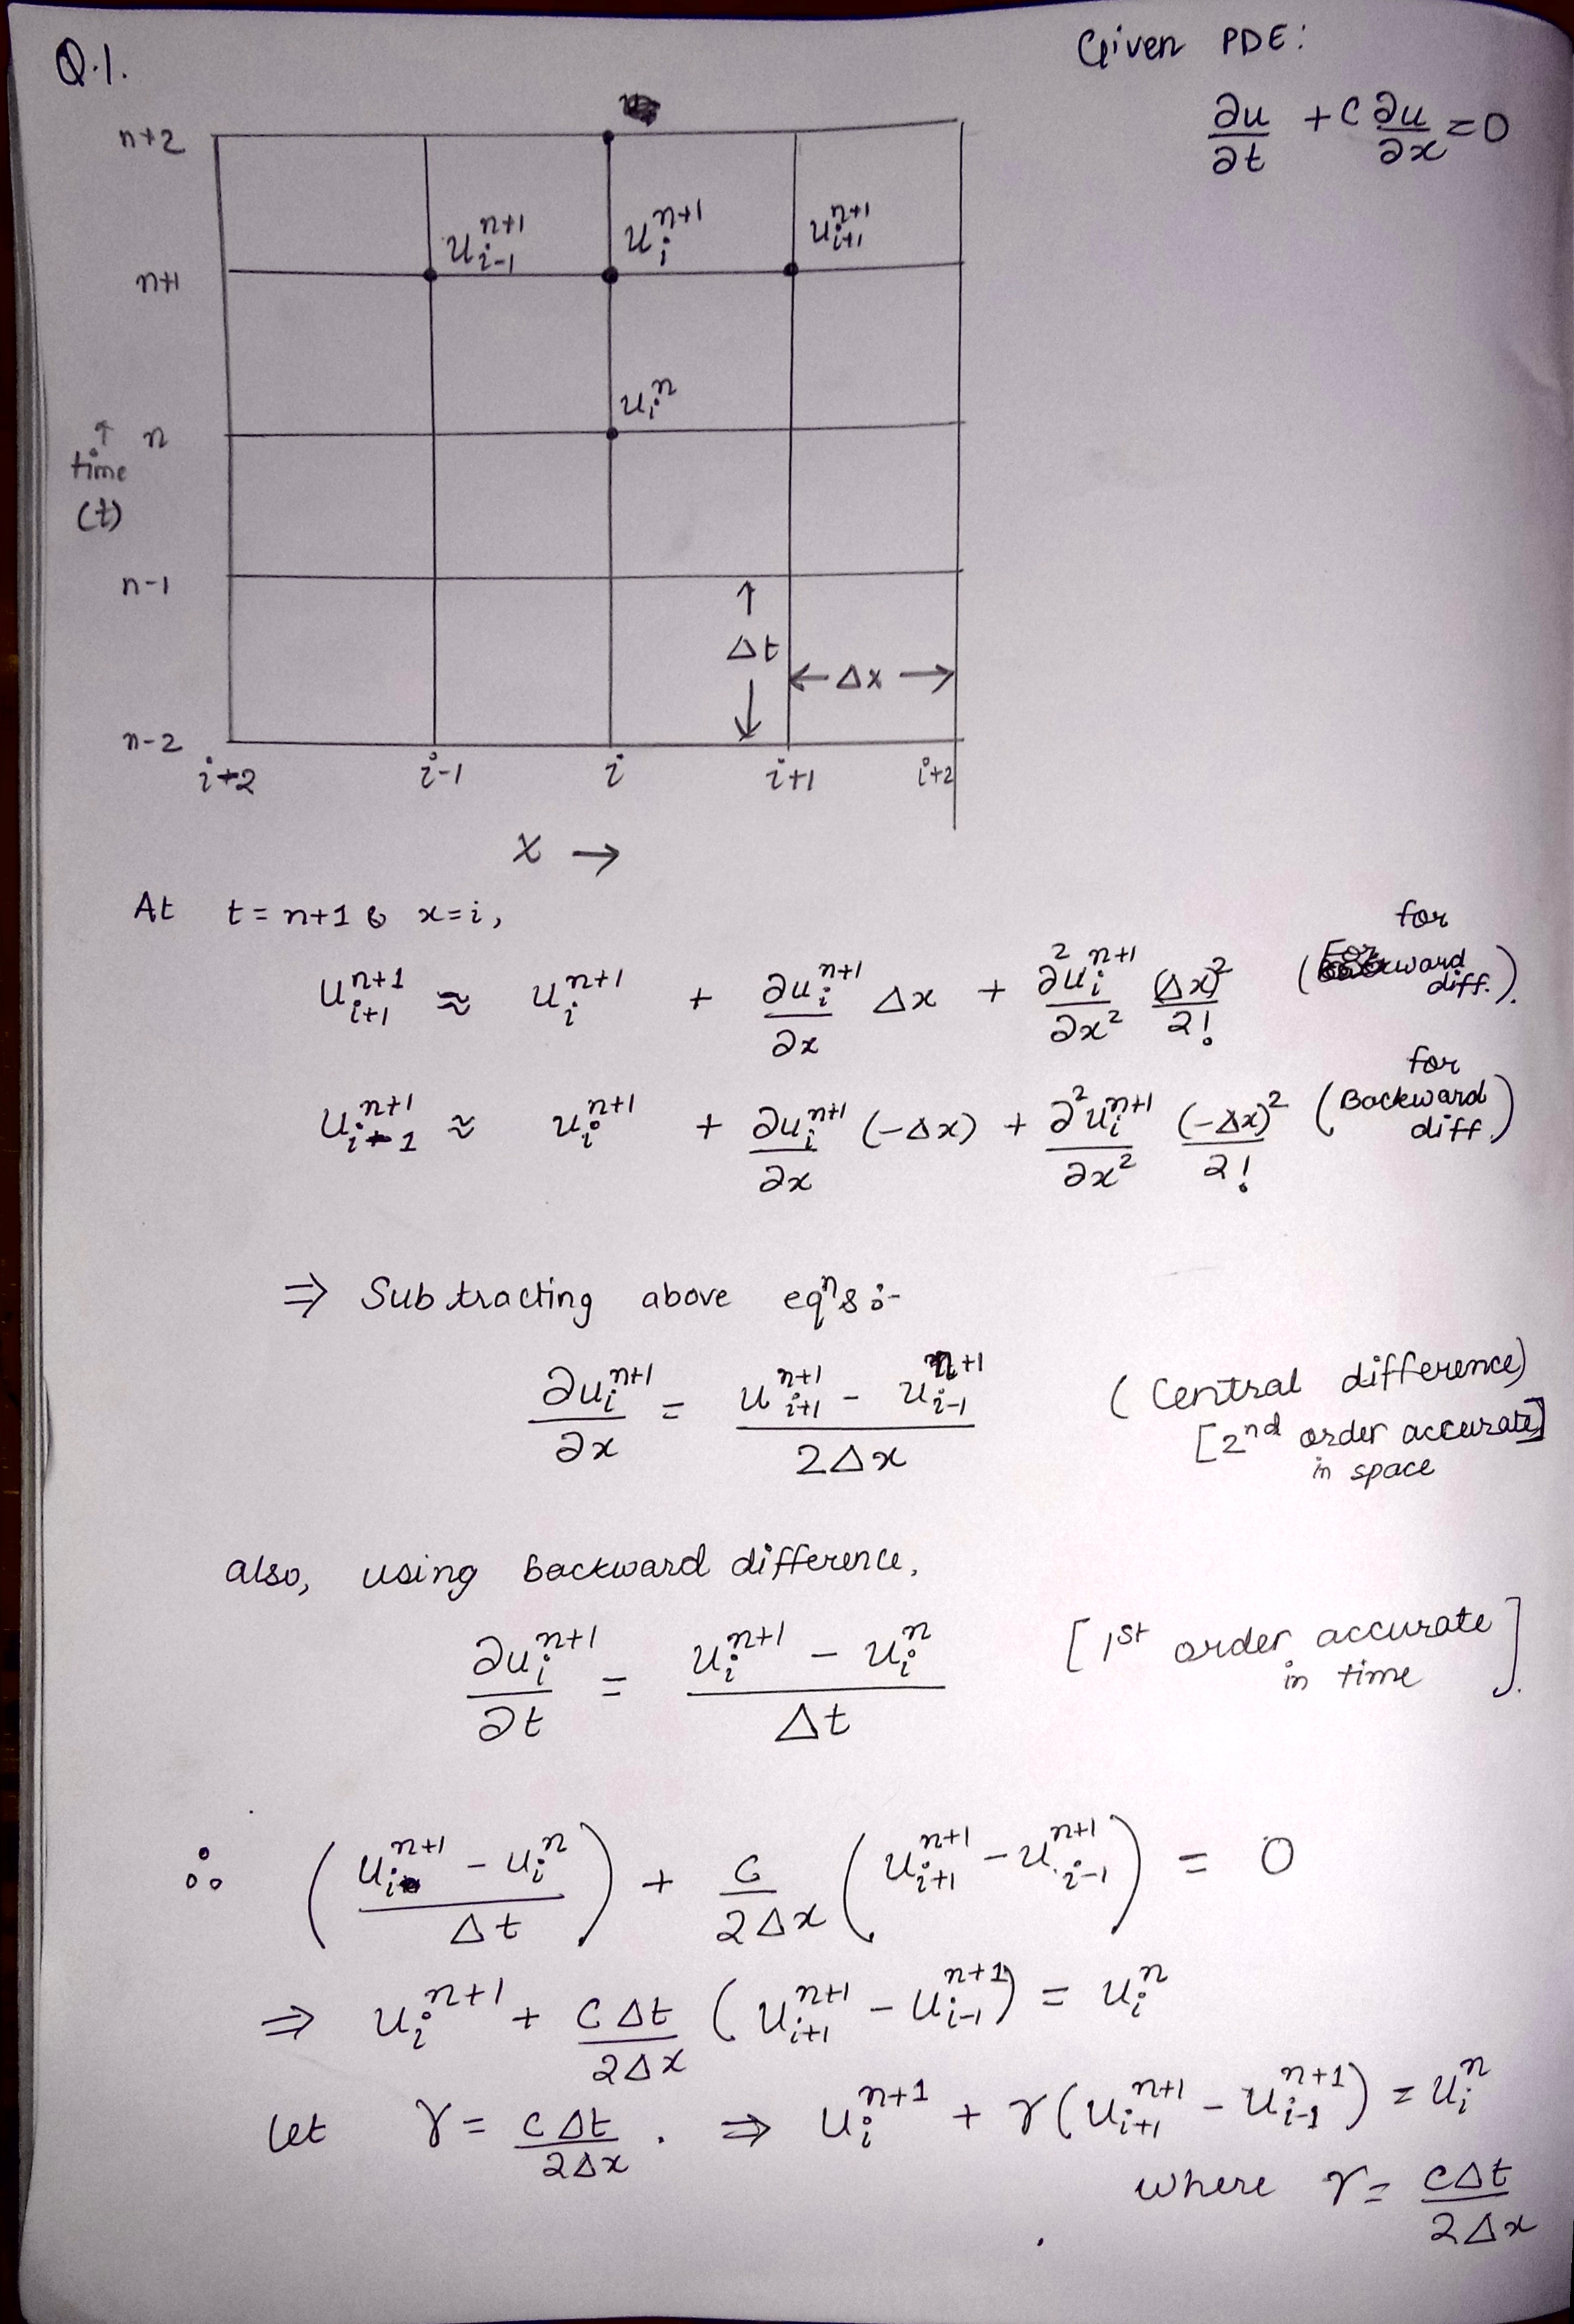 Q.1.
Given PDE:
∂u/∂t + C ∂u/∂x = 0
n+2
u_{i-1}^{n+1} u_i^{n+1} u_{i+1}^{n+1}
n+1
u_i^n
↑ n
time
(t)
n-1
↑
Δt
← Δx →
↓
n-2
i+2 i-1 i i+1 i+2
x →
At t = n+1 & x = i,
u_{i+1}^{n+1} ≈ u_i^{n+1} + ∂u_i^{n+1}/∂x Δx + ∂²u_i^{n+1}/∂x² (Δx)²/2! (for Forward diff.).
u_{i-1}^{n+1} ≈ u_i^{n+1} + ∂u_i^{n+1}/∂x (-Δx) + ∂²u_i^{n+1}/∂x² (-Δx)²/2! (for Backward diff.)
⇒ Subtracting above eqⁿs :-
∂u_i^{n+1}/∂x = (u_{i+1}^{n+1} - u_{i-1}^{n+1})/2Δx (Central difference)
[2nd order accurate]
in space
also, using backward difference,
∂u_i^{n+1}/∂t = (u_i^{n+1} - u_i^n)/Δt [1st order accurate in time].
∴ ((u_i^{n+1} - u_i^n)/Δt) + C/2Δx (u_{i+1}^{n+1} - u_{i-1}^{n+1}) = 0
⇒ u_i^{n+1} + CΔt/2Δx (u_{i+1}^{n+1} - u_{i-1}^{n+1}) = u_i^n
let γ = CΔt/2Δx . ⇒ u_i^{n+1} + γ(u_{i+1}^{n+1} - u_{i-1}^{n+1}) = u_i^n
where γ = CΔt/2Δx